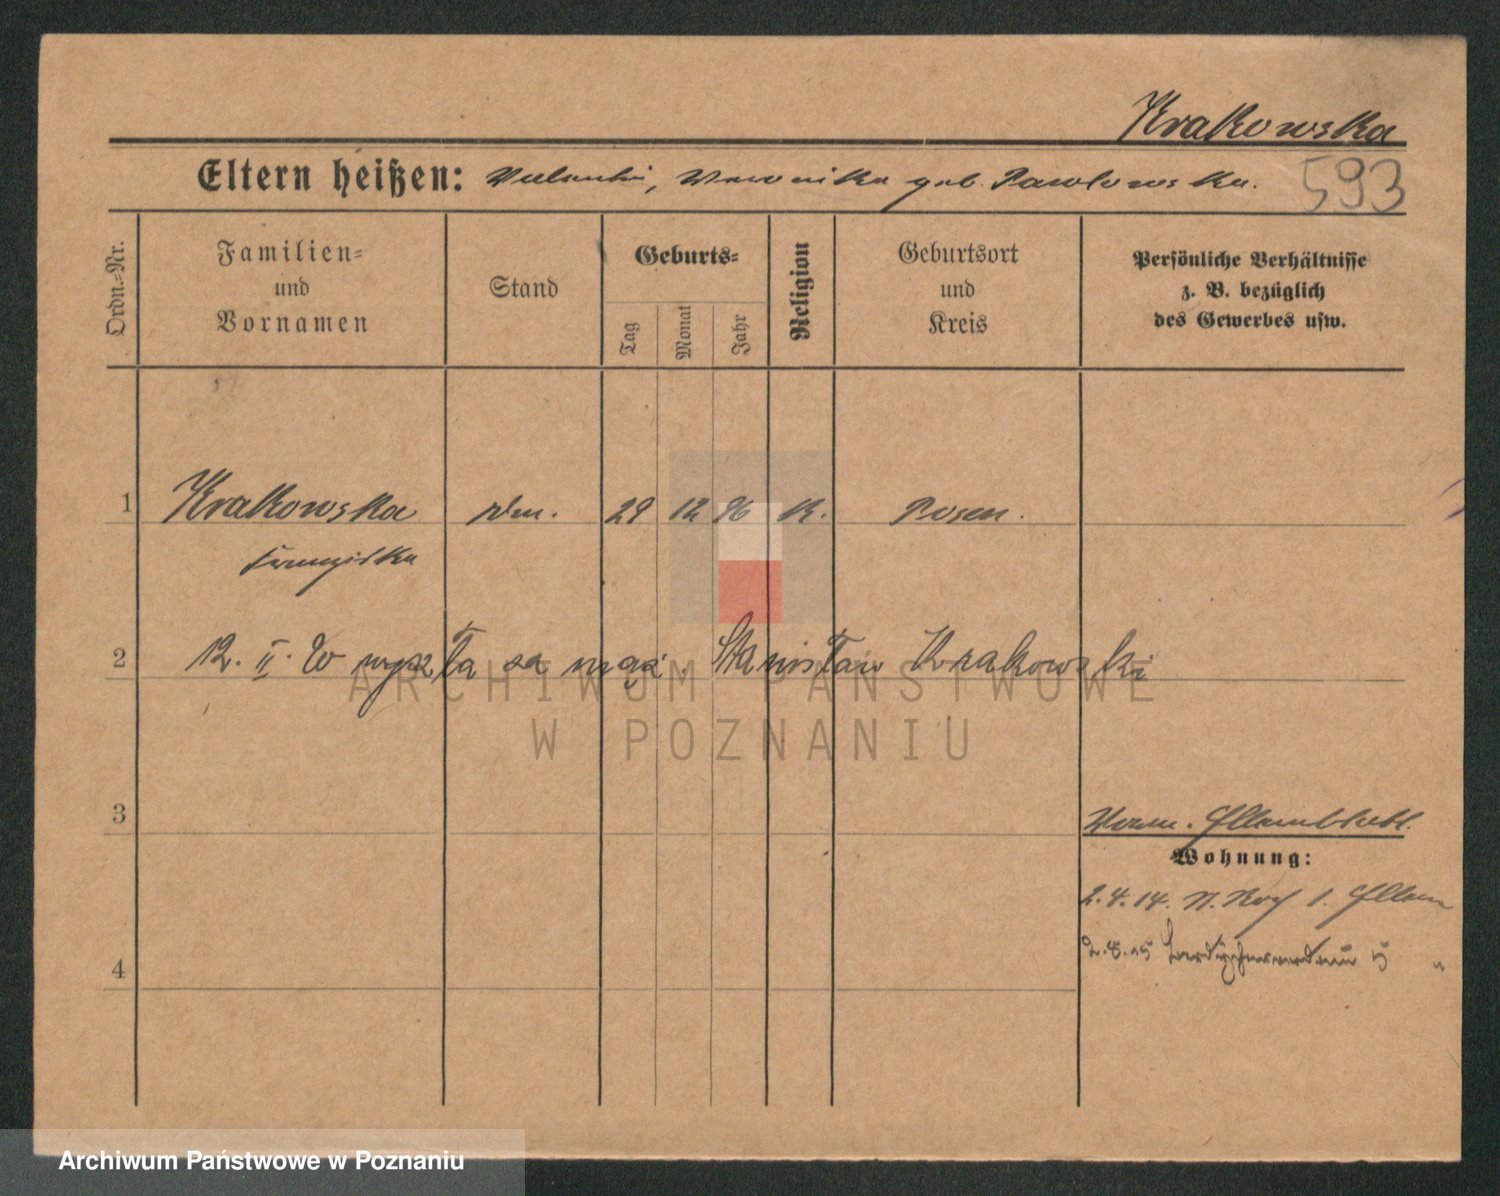 Krakowska
Eltern heißen: Valentin, Weronika geb. Pawlowska.
593
Ordn.-Nr.
Familien-
und
Vornamen
Stand
Geburts-
Tag
Monat
Jahr
Religion
Geburtsort
und
Kreis
Persönliche Verhältnisse
z. B. bezüglich
des Gewerbes usw.
1 Krakowska 29 12 96 K. Posen.
Franziska
2 12. II. 20 wyszła za mąż. Stanisław Krakowski
ARCHIWUM PAŃSTWOWE
W POZNANIU
3
Wohnung:
2. 4. 14.
4
Archiwum Państwowe w Poznaniu